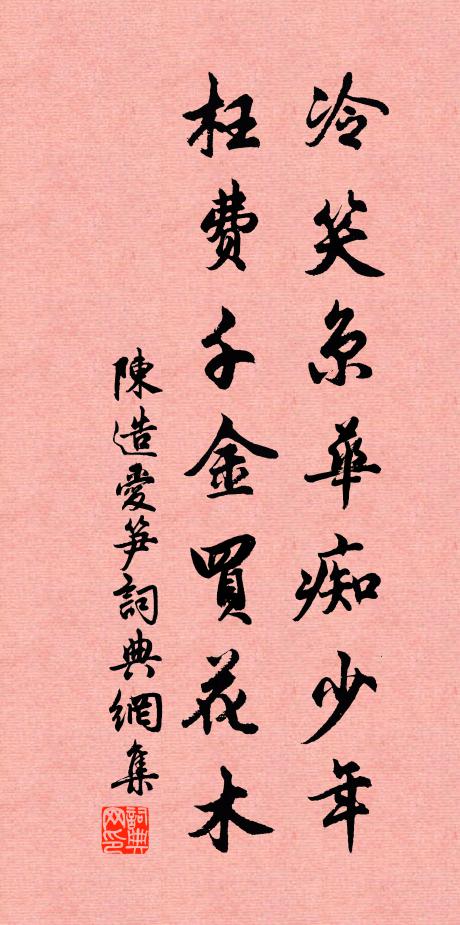 冷笑京華痴少年
枉費千金買花木
陳造愛笋詞典網集
詞典网印